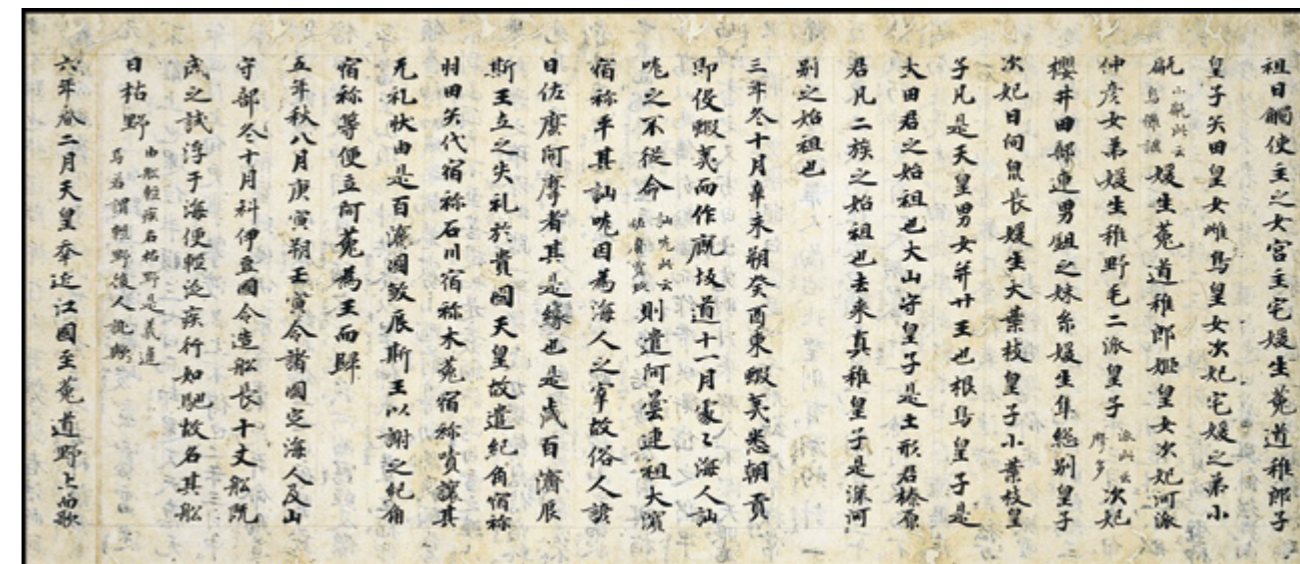 祖日觸使主之女宮主宅媛生菟道稚郎子
皇子矢田皇女雌鳥皇女次妃宅媛之弟小
甂小甂此云烏儺謎媛生菟道稚郎姬皇女次妃河派
仲彥女弟媛生稚野毛二派皇子派此云摩多次妃
櫻井田部連男鉏之妹糸媛生隼總別皇子
次妃日向泉長媛生大葉枝皇子小葉枝皇
子凡是天皇男女幷廿王也根鳥皇子是
大田君之始祖也大山守皇子是土形君榛原
君凡二族之始祖也去來真稚皇子是深河
別之始祖也
三年冬十月辛未朔癸酉東蝦夷悉朝貢
即役蝦夷而作厩坂道十一月處〻海人訕
哤之不從命訕哤此云佐麼賣玖則遣阿曇連祖大濱
宿祢平其訕哤因為海人之宰故俗人諺
曰佐麼阿摩者其是緣也是歲百濟辰
斯王立之失礼於貴國天皇故遣紀角宿祢
羽田矢代宿祢石川宿祢木菟宿祢嘖讓其
无礼狀由是百濟國敦辰斯王以謝之紀角
宿祢等便立阿菟為王而歸
五年秋八月庚寅朔壬寅令諸國定海人及山
守部冬十月科伊豆國令造船長十丈船既
成之試浮于海便輕泛疾行如馳故名其船
曰枯野由船輕疾名枯野是義違焉若謂輕野後人訛歟
六年春二月天皇幸近江國至菟道野上而歌